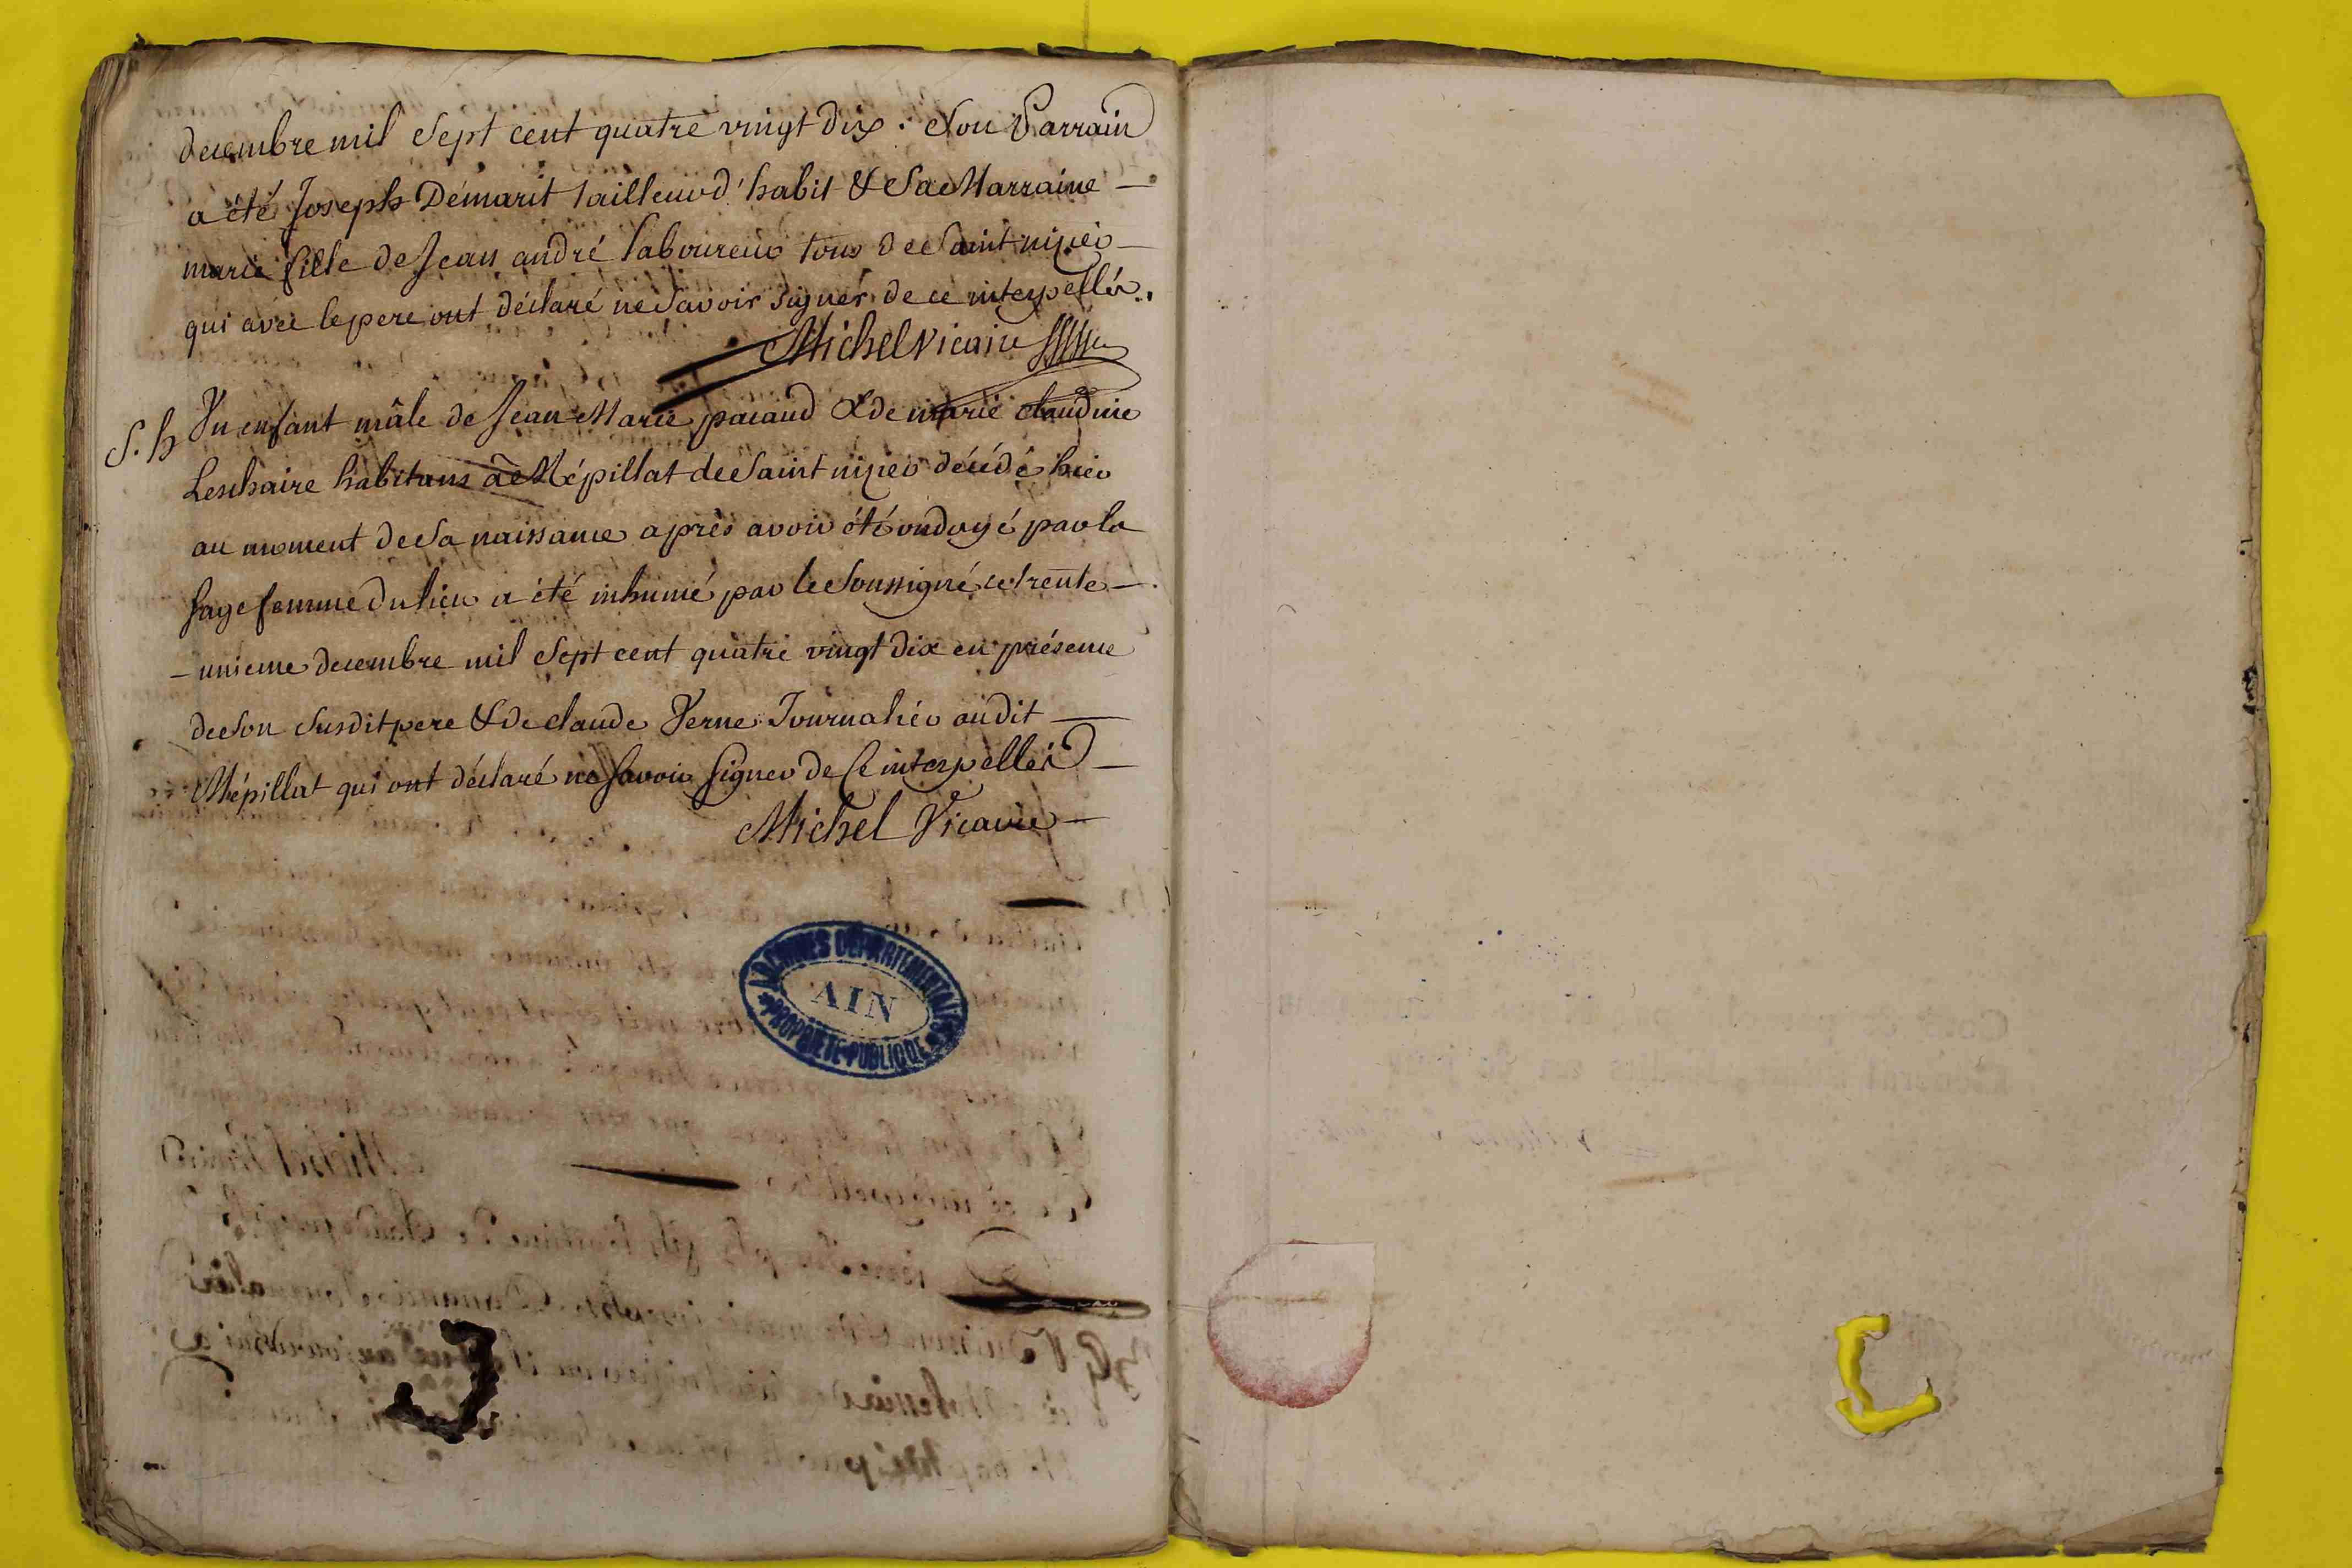 decembre mil Sept cent quatre vingt dix. Son Parrain
a été Joseph Démarit tailleur d'habit & Sa Marraine —
marie fille de Jean andré laboureur tous de Saint nizier —
qui avec le pere ont déclaré ne Savoir Signer de ce interpellés.
Michel Vicaire
S. h Un enfant mâle de Jean Marie paiaud & de marie claudine
Leschaire habitans à Mépillat de Saint nizier décédé hier
au moment de Sa naissance après avoir été ondoyé par la
Sage femme du lieu a été inhumé par le Soussigné ce trente —
— unieme decembre mil Sept cent quatre vingt dix en présence
de Son Susdit pere & de claude Verne Journalier audit —
Mépillat qui ont déclaré ne Savoir Signer de Ce interpellés —
Michel Vicaire —
ARCHIVES DÉPARTEMENTALES
AIN
* PROPRIÉTÉ PUBLIQUE *